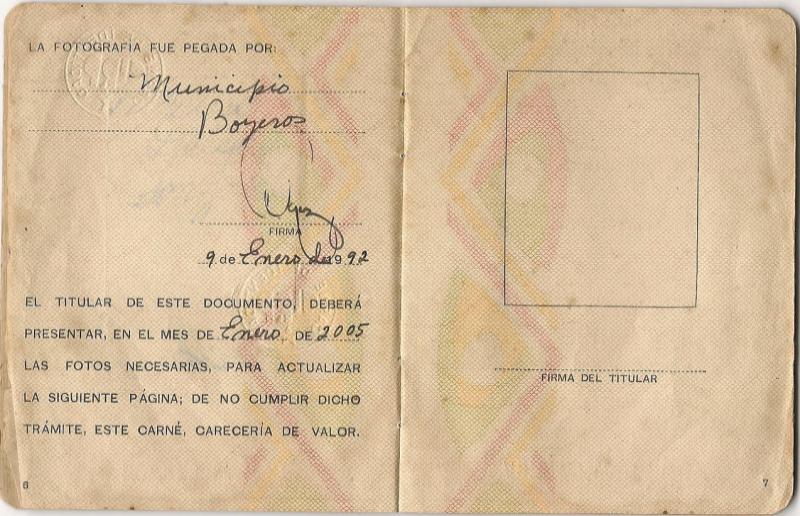 LA FOTOGRAFÍA FUE PEGADA POR:
Municipio
Boyeros
FIRMA
9 de Enero de 1992
EL TITULAR DE ESTE DOCUMENTO, DEBERÁ
PRESENTAR, EN EL MES DE Enero, DE 2005
LAS FOTOS NECESARIAS, PARA ACTUALIZAR
LA SIGUIENTE PÁGINA; DE NO CUMPLIR DICHO
TRÁMITE, ESTE CARNÉ, CARECERÍA DE VALOR.
6
FIRMA DEL TITULAR
7